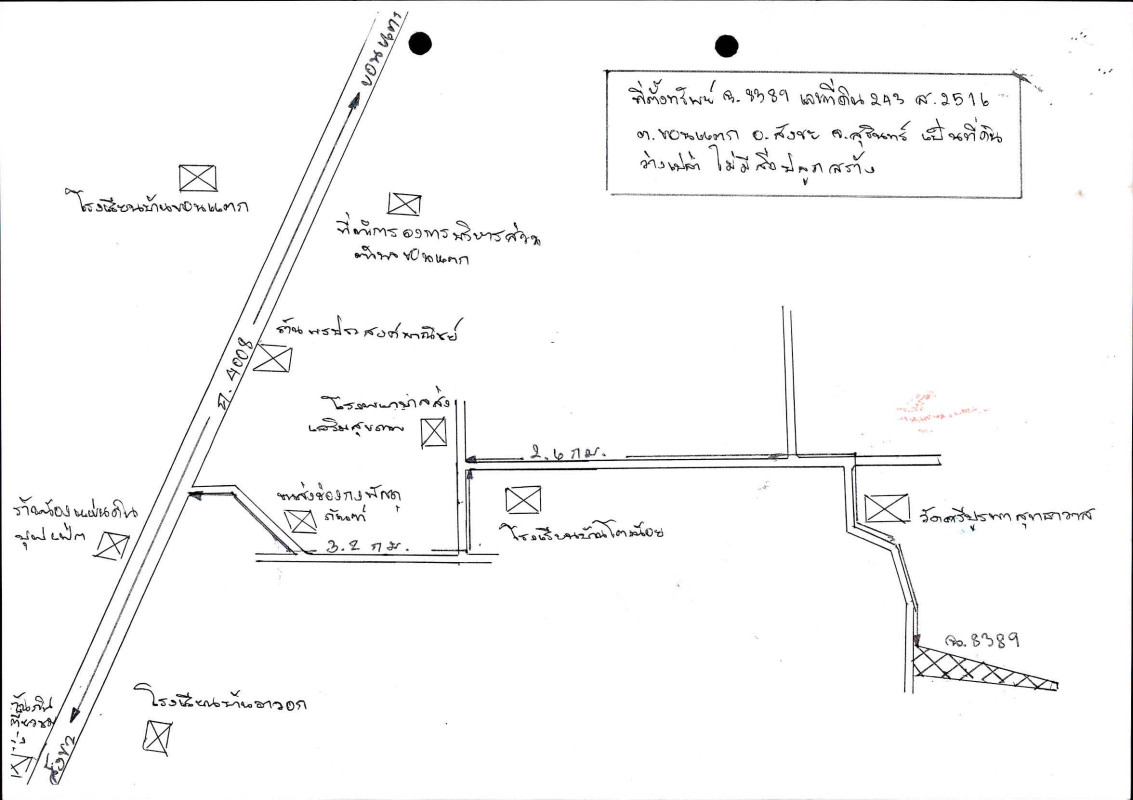 ที่ตั้งทรัพย์ ฉ.8389 เลขที่ดิน 243 ส.2516
ต.ขอนแตก อ.สังขะ จ.สุรินทร์ เป็นที่ดิน
ว่างเปล่า ไม่มีสิ่งปลูกสร้าง
ขอนแตก
โรงเรียนบ้านขอนแตก
ที่ทำการองการบริหารส่วน
ตำบลขอนแตก
ร้านพรประสงค์พาณิชย์
ถ. 4008
โรงพยาบาลส่ง
เสริมสุขภาพ
2.6 กม.
ร้านน้องแผ่นดิน
บุฟเฟ่ต์
ขนส่งช่องกงพัสดุ
ภัณฑ์
3.2 กม.
โรงเรียนบ้านโตงน้อย
วัดศรีบูรพาสุทธาวาส
ฉ.8389
โรงเรียนบ้านอาวอก
สังขะ